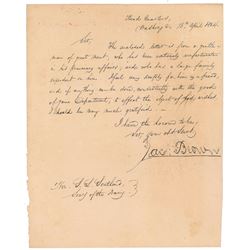 Head Quarters,
Washington 15th April, 1824.
Sir,
The enclosed letter is from a gentle-
man of great merit, who has been entirely unfortunate
in his pecuniary affairs; and who has a large family
dependent on him. I feel very deeply for him as a friend,
and if anything can be done, consistently with the good
of your Department, to effect the object of his wishes
I should be very much gratified.
I have the honor to be,
Sir, your obt. Servt.
Jac: Brown
The Hon. S. L. Southard,
Secy of the Navy.